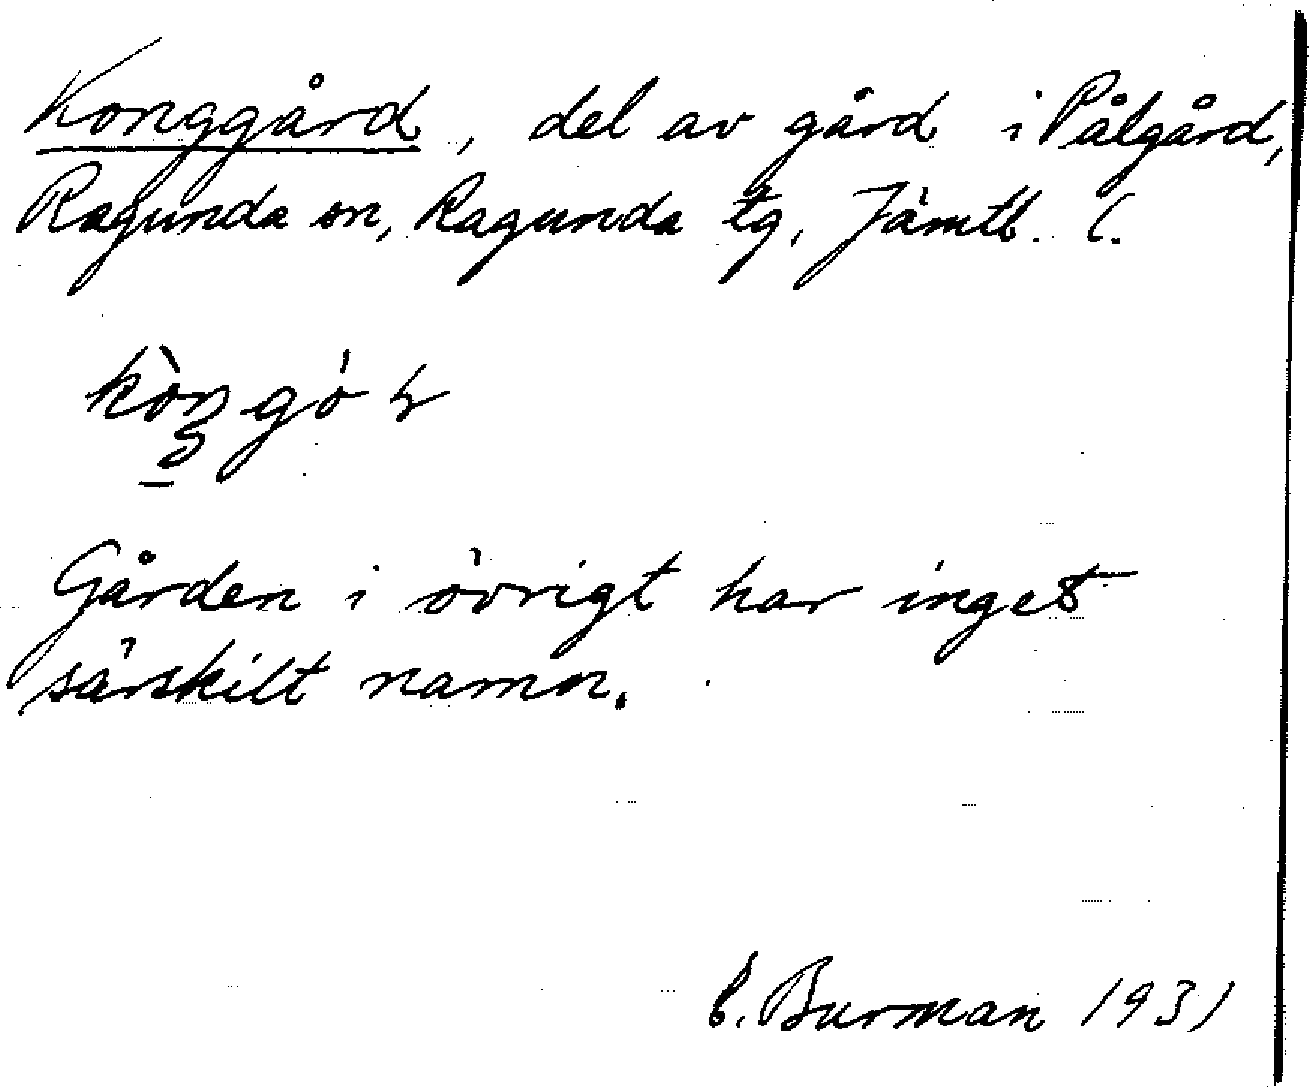 Konggård, del av gård i Pålgård,
Ragunda sn, Ragunda tg, Jämtl. l.
Gården i övrigt har inget
särskilt namn.
Burman 1931